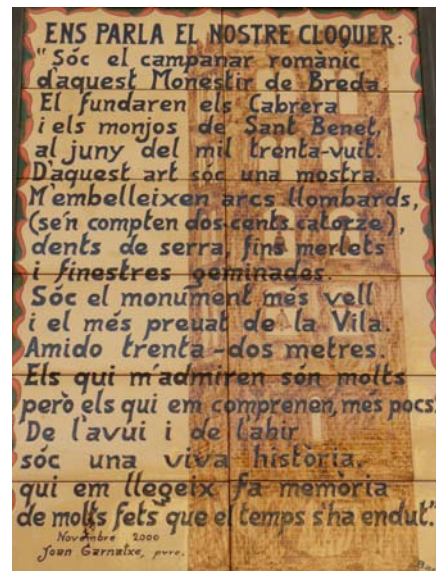 ENS PARLA EL NOSTRE CLOQUER:
"Sóc el campanar romànic
d'aquest Monestir de Breda.
El fundaren els Cabrera
i els monjos de Sant Benet,
al juny del mil trenta-vuit.
D'aquest art sóc una mostra.
M'embelleixen arcs llombards,
(se'n compten dos-cents catorze),
dents de serra, fins merlets
i finestres geminades.
Sóc el monument més vell
i el més preuat de la Vila.
Amido trenta-dos metres.
Els qui m'admiren són molts
però els qui em comprenen, més pocs.
De l'avui i de l'ahir
sóc una viva història.
qui em llegeix fa memòria
de molts fets que el temps s'ha endut."
Novembre 2000
Joan Garnatxe, pvre.